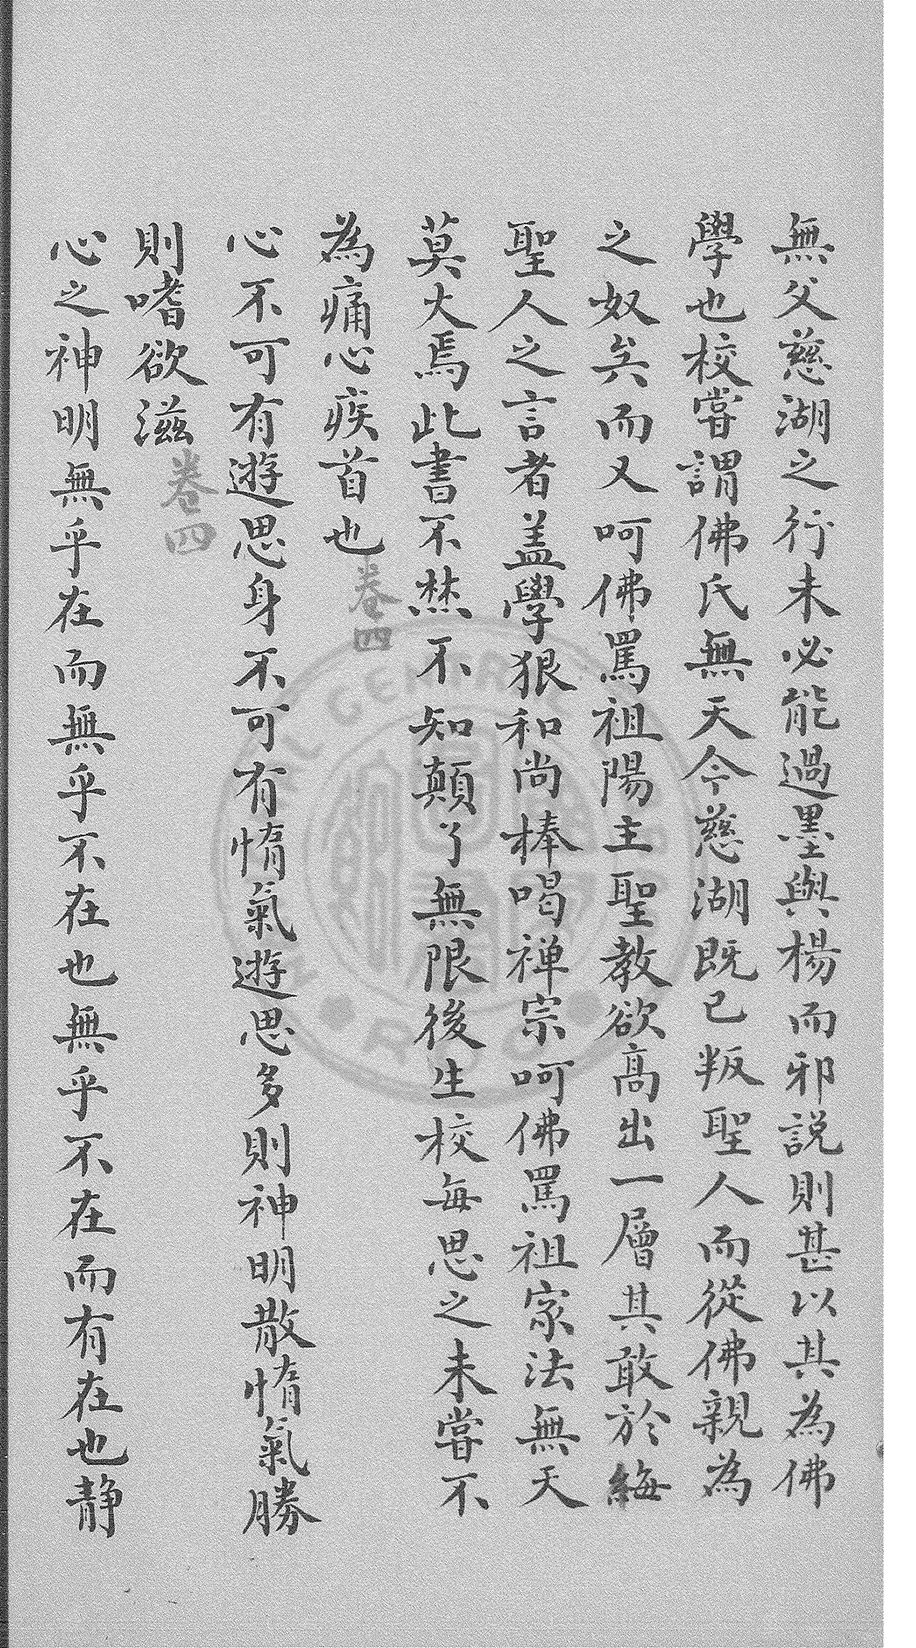 無父慈湖之行未必能過墨與楊而邪説則甚以其為佛
學也校嘗謂佛氏無天今慈湖既已叛聖人而從佛親為
之奴矣而又呵佛罵祖陽主聖教欲高出一層其敢於侮
聖人之言者盖學狠和尚棒喝禅宗呵佛罵祖家法無天
莫大焉此書不焚不知顛了無限後生校每思之未嘗不
為痛心疾首也卷四
心不可有遊思身不可有惰氣遊思多則神明散惰氣勝
則嗜欲滋卷四
心之神明無乎在而無乎不在也無乎不在而有在也静